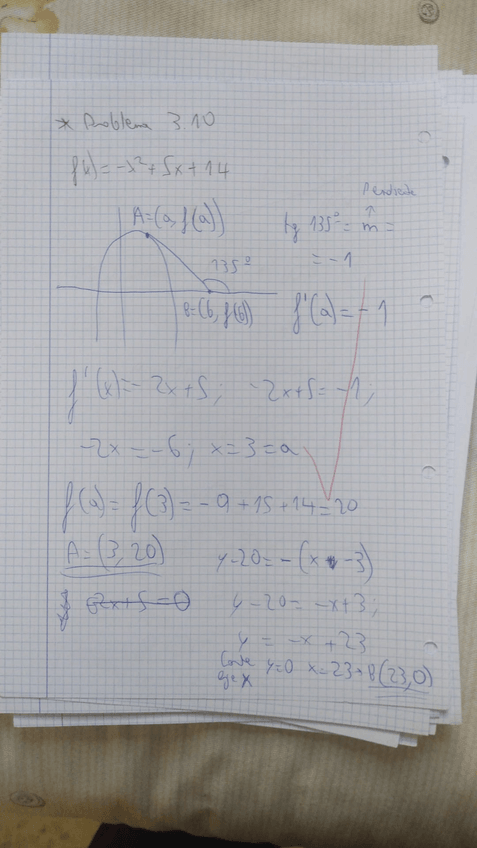 * Problema 3.10
f(x)=-x²+5x+14
Pendiente
A=(a, f(a))
tg 135º = m =
= -1
135º
B=(b, f(b))
f'(a)=-1
f'(x)=-2x+5; -2x+5=-1;
-2x=-6; x=3=a
f(a)=f(3)=-9+15+14=20
A=(3,20)
y-20=-(x-3)
-2x+5=0
y-20=-x+3;
y = -x +23
Corte eje x y=0 x=23→B(23,0)